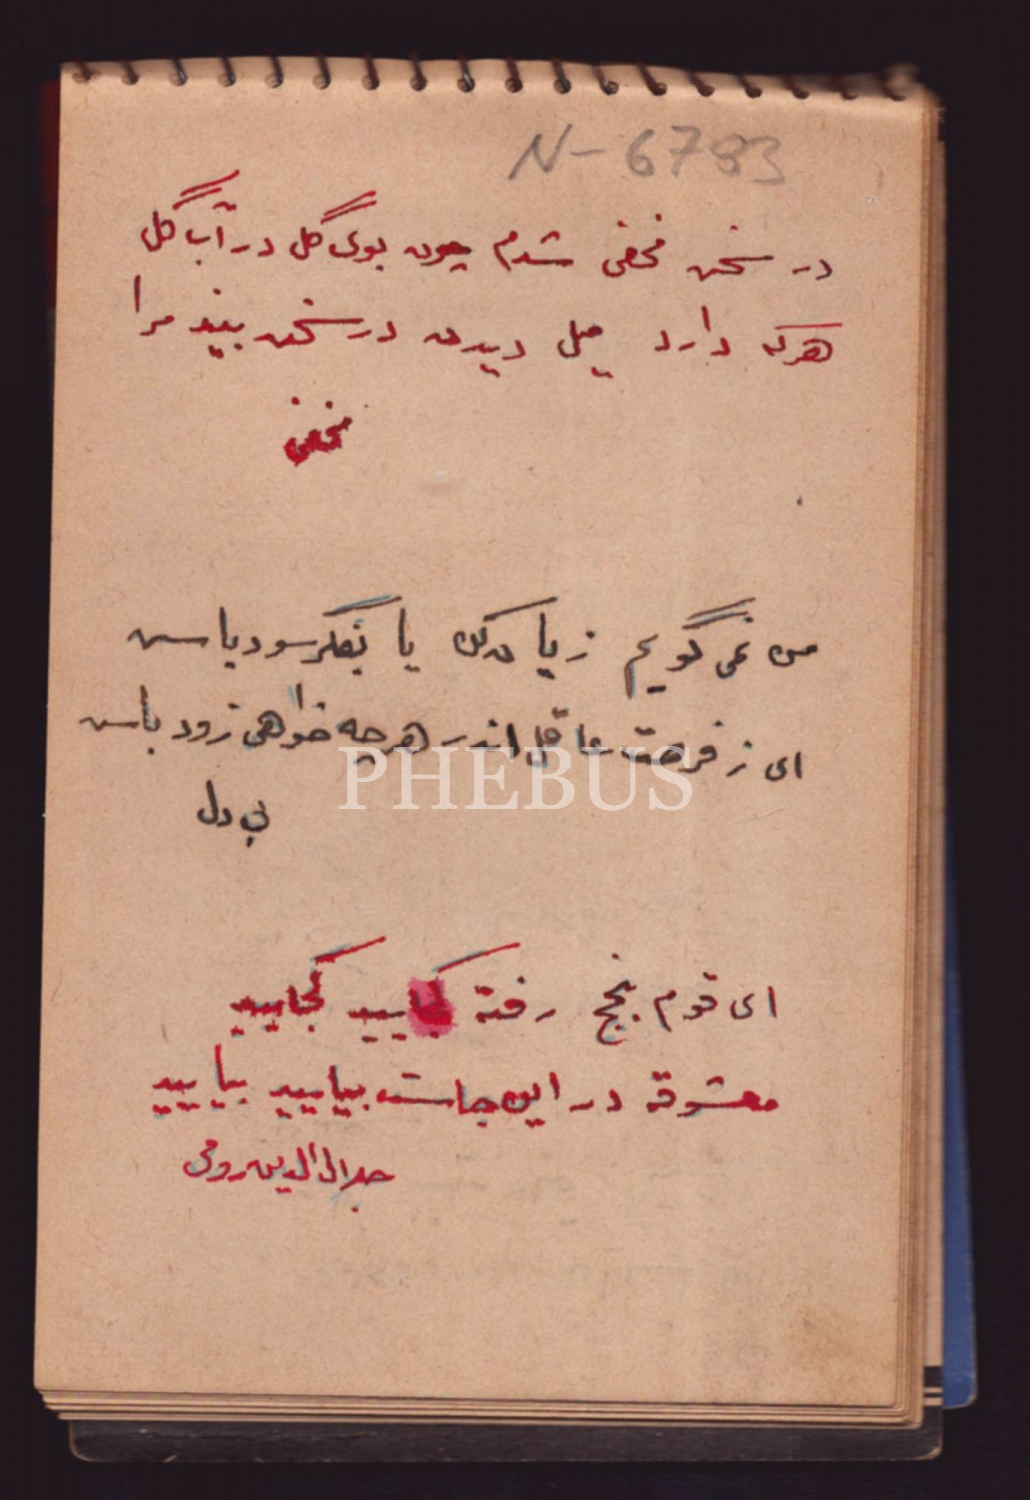 N-6783
در سخن مخفی شدم چون بوی گل در آب گل
هرکه دارد میل دیدن در سخن بیند مرا
مخفی
من نمی گویم زیان کن یا بفکر سود باش
ای ز فرصت غافل اندر هرچه خواهی زود باش
PHEBUS
بی دل
ای قوم بحج رفته کجایید کجایید
معشوقه در این جاست بیایید بیایید
جلال الدین رومی